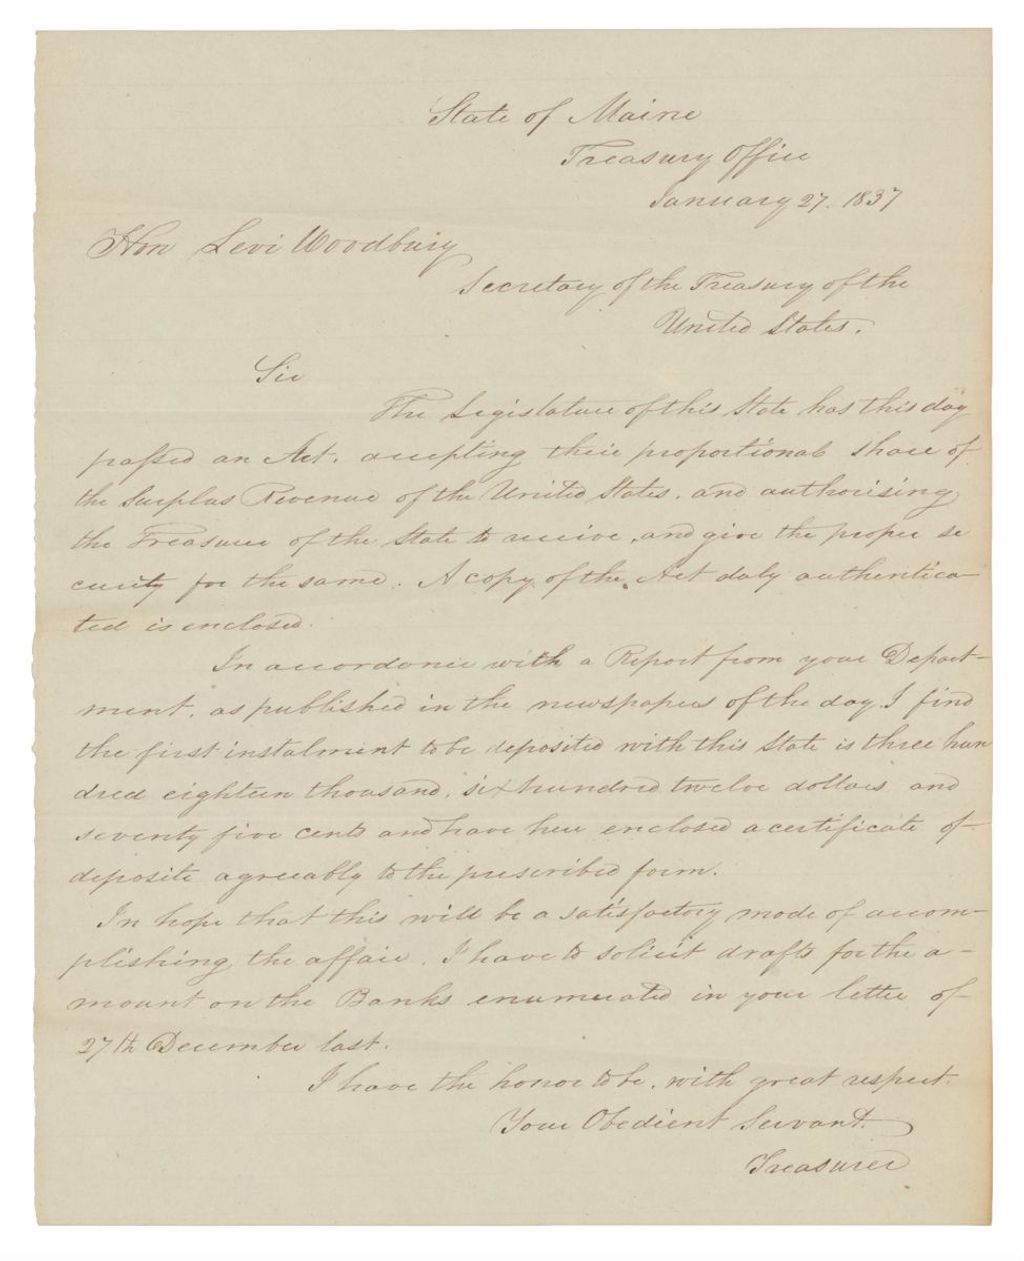 State of Maine
Treasury Office
January 27. 1837
Hon Levi Woodbury
Secretary of the Treasury of the
United States.
Sir
The Legislature of this State has this day
passed an Act. accepting their proportional share of
the Surplus Revenue of the United States. and authorising
the Treasurer of the State to receive, and give the proper se
curity for the same. A copy of the Act duly authentica-
ted is enclosed.
In accordance with a Report from your Depart-
ment, as published in the newspapers of the day I find
the first instalment to be deposited with this State is three hun
dred eighteen thousand, six hundred twelve dollars and
seventy five cents and have here enclosed a certificate of
deposite agreeably to the prescribed form.
In hope that this will be a satisfactory mode of accom-
plishing the affair, I have to solicit drafts for the a-
mount on the Banks enumerated in your letter of
27th December last.
I have the honor to be, with great respect.
Your Obedient Servant.
Treasurer